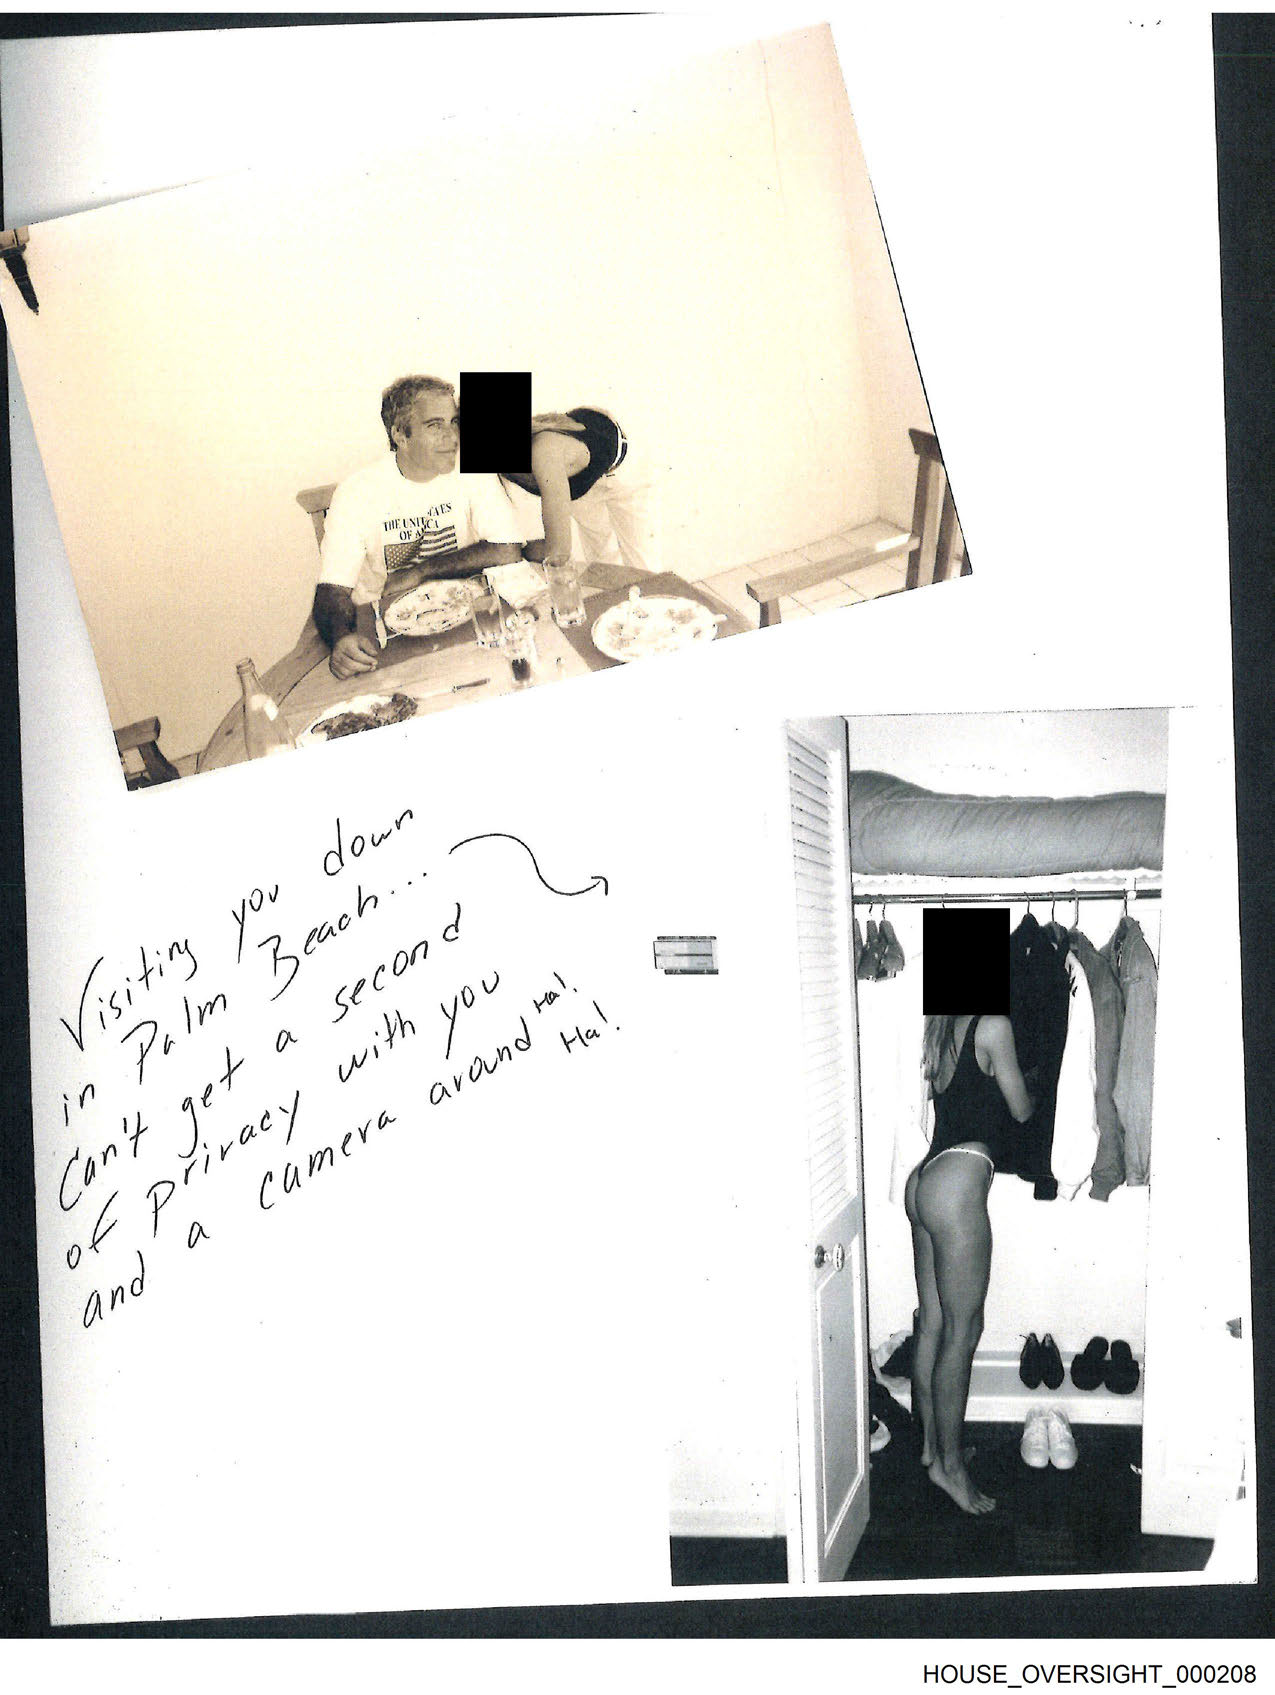 THE UNITED STATES
OF AMERICA
Visiting you down
in Palm Beach...
Can't get a second
of privacy with you
and a camera around Ha!
Ha!
HOUSE_OVERSIGHT_000208